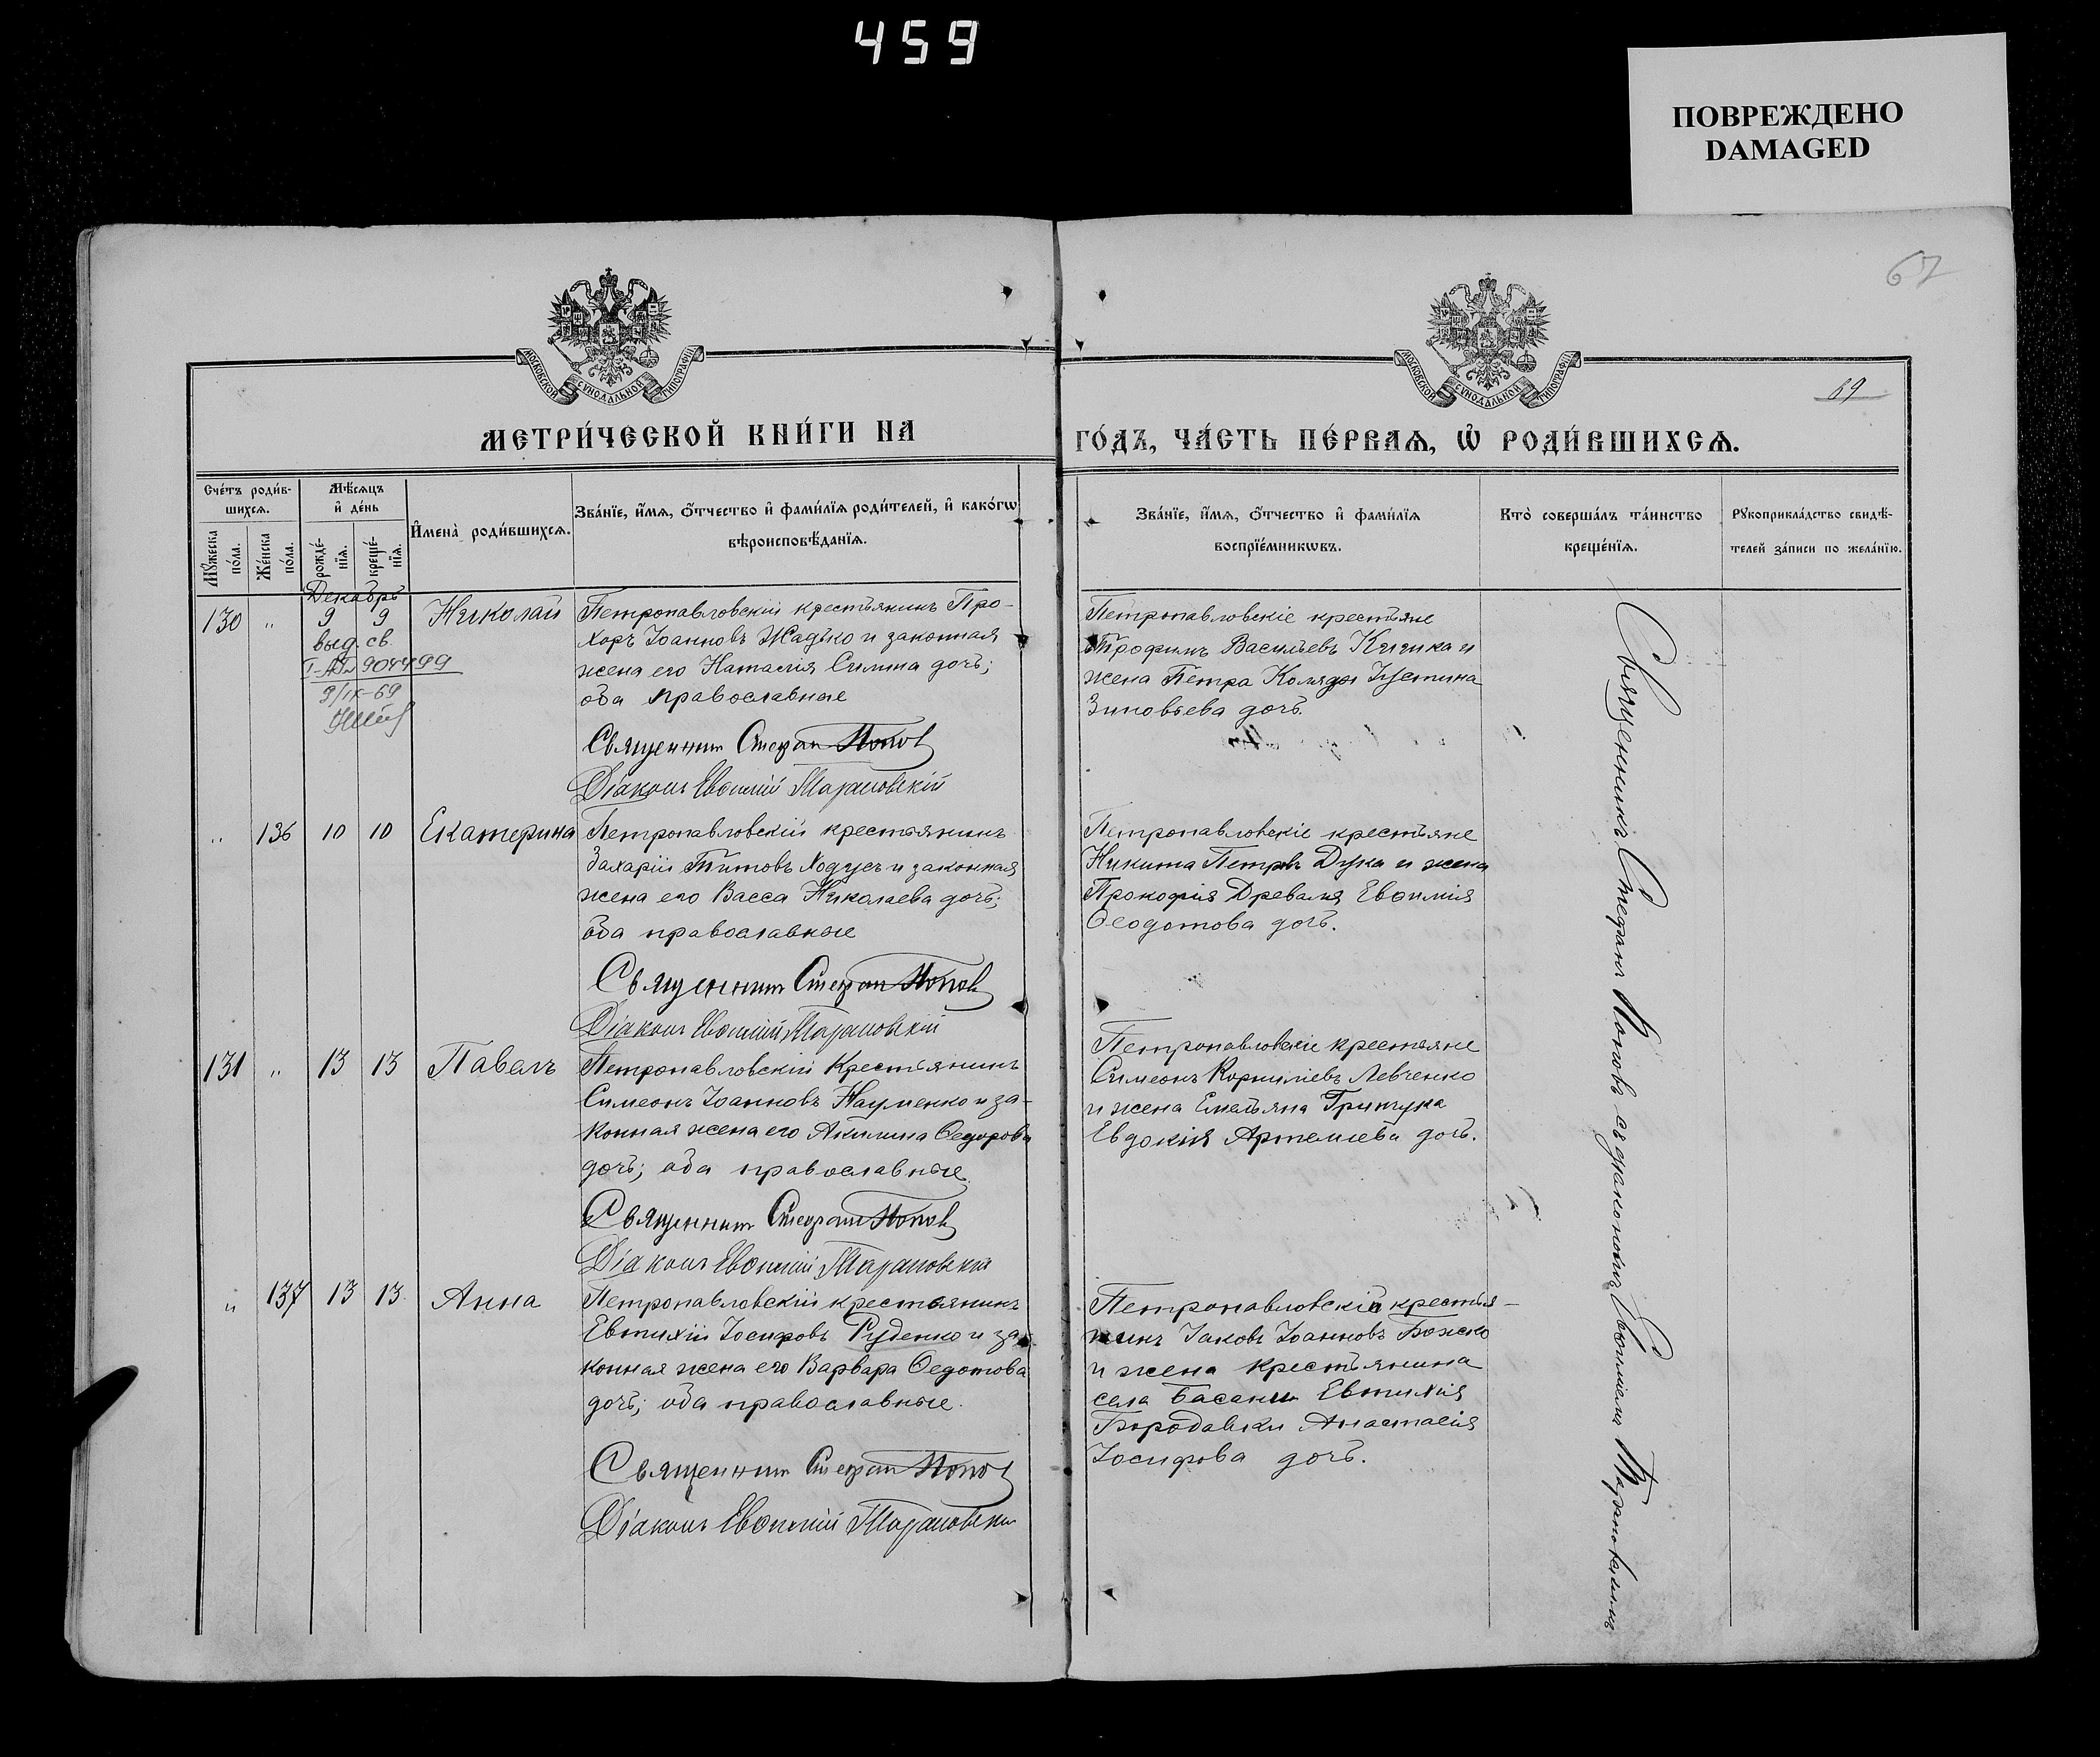 459
ПОВРЕЖДЕНО
DAMAGED
67
69
МОСКОВСКОЙ СѴНОДАЛЬНОЙ ТИПОГРАФІИ
МОСКОВСКОЙ СѴНОДАЛЬНОЙ ТИПОГРАФІИ
МЕТРИ́ЧЕСКОЙ КНИ́ГИ НА
ГО́ДЪ, ЧА́СТЬ ПЕ́РВАѦ, Ѡ҆ РОДИ́ВШИХСѦ.
Сче́тъ роди́в-
шихсѧ.
Мꙋ́жеска по́ла.
Же́нска по́ла.
Мѣ́сѧцъ
и҆ де́нь
рожде́-
нїѧ.
креще́-
нїѧ.
И҆мена̀ роди́вшихсѧ.
Зва́нїе, и҆́мѧ, ѻ҆́тчество и҆ фами́лїѧ роди́телей, и҆ како́гѡ
вѣроисповѣ́данїѧ.
Зва́нїе, и҆́мѧ, ѻ҆́тчество и҆ фами́лїѧ
воспрїе́мникѡвъ.
Кто̀ соверша́лъ та́инство
креще́нїѧ.
Рꙋкоприкла́дство свидѣ́-
телей за́писи по жела́нїю.
Декабрь
130 " 9 9 Николай
выд. св.
904499
9/IX-69
Петропавловскій крестьянинъ Про-
хоръ Іоанновъ Жадько и законная
жена его Наталія Симина дочь;
оба православные
Священник Стефан Попов
Діаконъ Евѳимій Тарановскій
Петропавловскіе крестьяне
Трофимъ Васильевъ Кишка и
жена Петра Коляды Іустина
Зиновьева дочь.
" 136 10 10 Екатерина
Петропавловскій крестьянинъ
Захарій Титовъ Ходусъ и законная
жена его Васса Николаева дочь;
оба православные
Священник Стефан Попов
Діаконъ Евѳимій Тарановскій
Петропавловскіе крестьяне
Никита Петровъ Дука и жена
Прокофія Древаля Евѳимія
Ѳеодотова дочь.
131 " 13 13 Павелъ
Петропавловскій Крестьянинъ
Симеонъ Іоанновъ Науменко и за-
конная жена его Акилина Ѳедорова
дочь; оба православные.
Священник Стефан Попов
Діаконъ Евѳимій Тарановскій
Петропавловскіе крестьяне
Симеонъ Корниліевъ Левченко
и жена Емельяна Грищука
Евдокія Артемиева дочь.
" 137 13 13 Анна
Петропавловскій крестьянинъ
Евтихій Іосифовъ Руденко и за-
конная жена его Варвара Ѳедотова
дочь; оба православные.
Священник Стефан Попов
Діаконъ Евѳимій Тарановскій
Петропавловскій крестья-
нинъ Іаковъ Іоанновъ Божко
и жена крестьянина
села Басани Евтихія
Бородавки Анастасія
Іосифова дочь.
Священникъ Стефанъ Поповъ съ діакономъ Евѳиміемъ Тарановскимъ